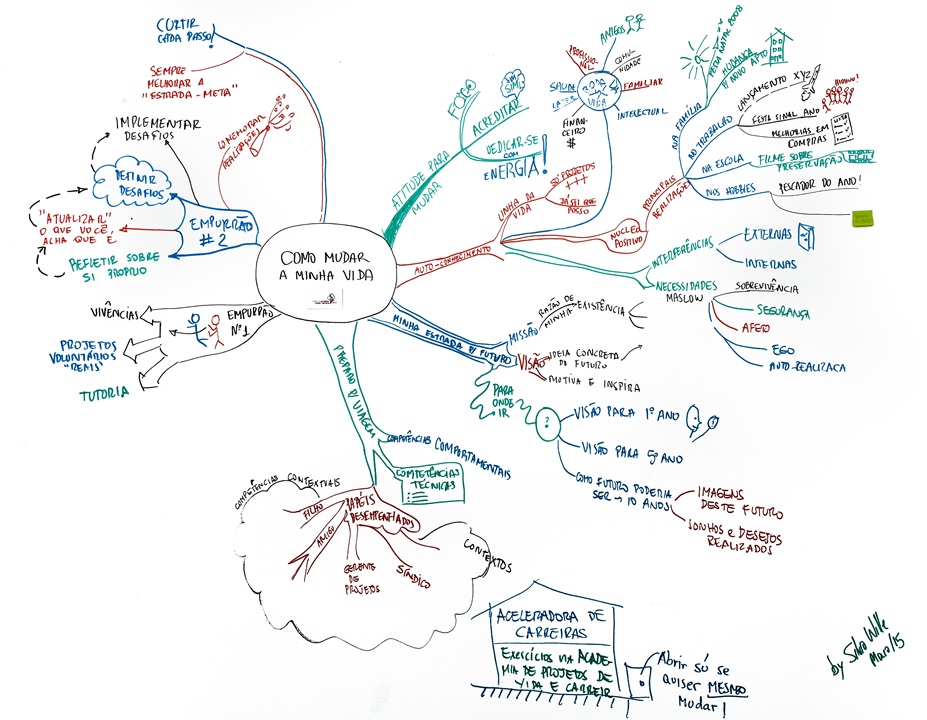 COMO MUDAR
A MINHA VIDA
CURTIR
CADA PASSO!
SEMPRE
MELHORAR A
"ESTRADA-META"
COMEMORAR
REALIZAÇÕES
IMPLEMENTAR
DESAFIOS
DEFINIR
DESAFIOS
"ATUALIZAR"
O QUE VOCÊ
ACHA QUE É
REFLETIR SOBRE
SI PRÓPRIO
EMPURRÃO
#2
VIVÊNCIAS
EMPURRÃO
Nº1
PROJETOS
VOLUNTÁRIOS
"REAIS"
TUTORIA
ATITUDE PARA
MUDAR
FOCO
ACREDITAR
SIM!
DEDICAR-SE
COM
ENERGIA!
AUTO-CONHECIMENTO
LINHA DA
VIDA
SÓ PROJETOS
+++
JÁ SEI QUE
POSSO
AMIGOS
PROFISSIO-
NAL
COMU-
NIDADE
SAÚDE
LAZER
RODA
VIDA
FAMILIAR
FINAN-
CEIRO
#
INTELECTUAL
NUCLEO
POSITIVO
PRINCIPAIS
REALIZAÇÕES
NA FAMÍLIA
FESTA NATAL 2008
MUDANÇA
P/ NOVO APTO
NO TRABALHO
LANÇAMENTO XYZ
FESTA FINAL ANO
MELHORIAS EM
COMPRAS
NA ESCOLA
FILME SOBRE
PRESERVAÇÃO
NOS HOBBIES
PESCADOR DO ANO!
INTERFERÊNCIAS
EXTERNAS
INTERNAS
NECESSIDADES
MASLOW
SOBREVIVÊNCIA
SEGURANÇA
AFETO
EGO
AUTO-REALIZACA
MINHA ESTRADA P/ FUTURO
MISSÃO
RAZÃO DE
MINHA
EXISTÊNCIA
VISÃO
IDEIA CONCRETA
DO FUTURO
MOTIVA E INSPIRA
PARA
ONDE
IR
?
VISÃO PARA 1º ANO
VISÃO PARA 5º ANO
COMO FUTURO PODERIA
SER → 10 ANOS
IMAGENS
DESTE FUTURO
SONHOS e DESEJOS
REALIZADOS
PREPARO P/ VIAGEM
COMPETÊNCIAS COMPORTAMENTAIS
COMPETÊNCIAS
TÉCNICAS
COMPETÊNCIAS CONTEXTUAIS
PAPÉIS
DESEMPENHADOS
FILHO
AMIGO
GERENTE
DE
PROJETOS
SÍNDICO
CONTEXTOS
ACELERADORA DE
CARREIRAS
EXERCÍCIOS NA ACADE
MIA DE PROJETOS DE
VIDA E CARREIR
Abrir só se
quiser MESMO
Mudar!
by Silvio Wille
Maro/15